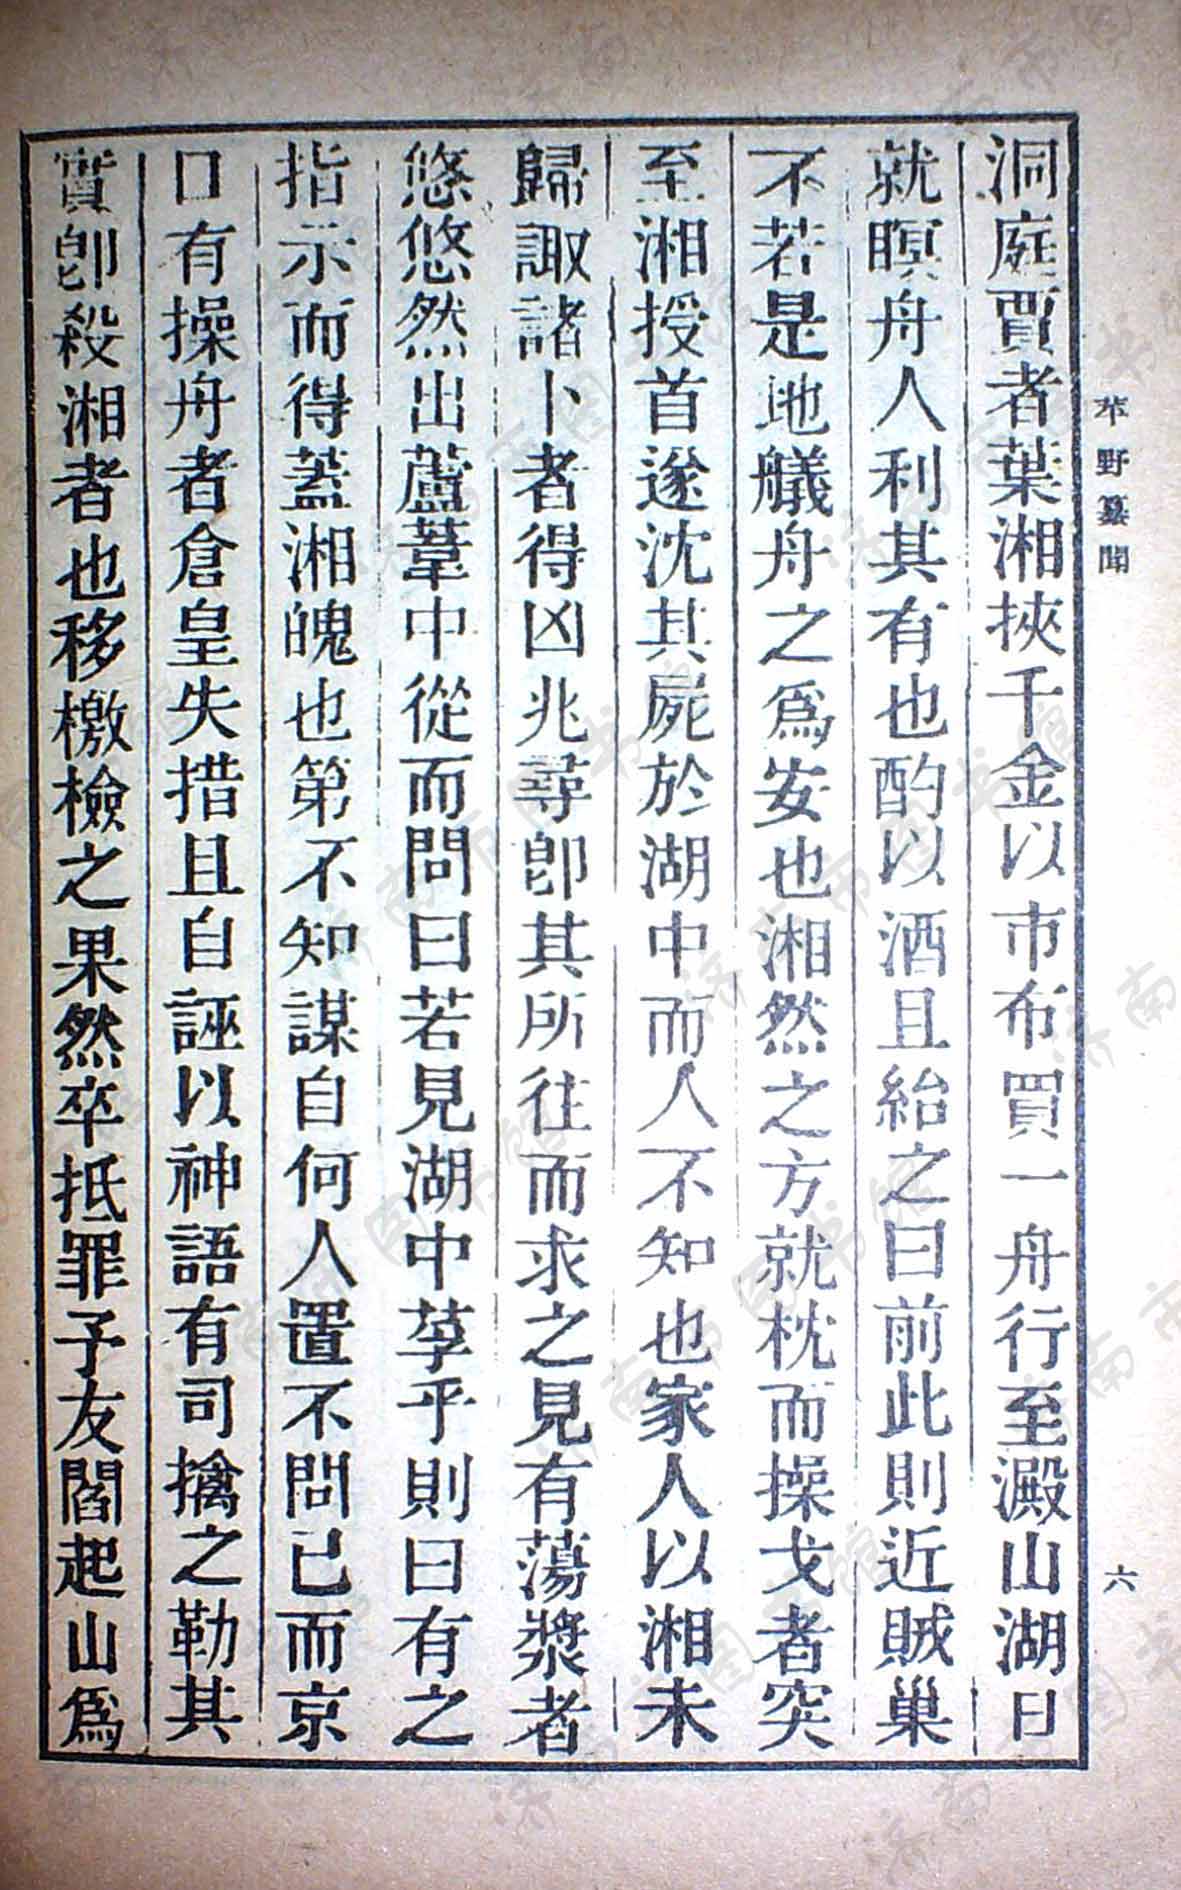 苹野纂聞
六
洞庭賈者葉湘挾千金以市布買一舟行至澱山湖日
就瞑舟人利其有也酌以酒且紿之曰前此則近賊巢
不若是地艤舟之爲安也湘然之方就枕而操戈者突
至湘授首遂沈其屍於湖中而人不知也家人以湘未
歸諏諸卜者得凶兆尋卽其所往而求之見有蕩槳者
悠悠然出蘆葦中從而問曰若見湖中莩乎則曰有之
指示而得蓋湘魄也第不知謀自何人置不問已而京
口有操舟者倉皇失措且自誣以神語有司擒之勒其
實卽殺湘者也移檄檢之果然卒抵罪予友閻起山爲
济南市图书馆